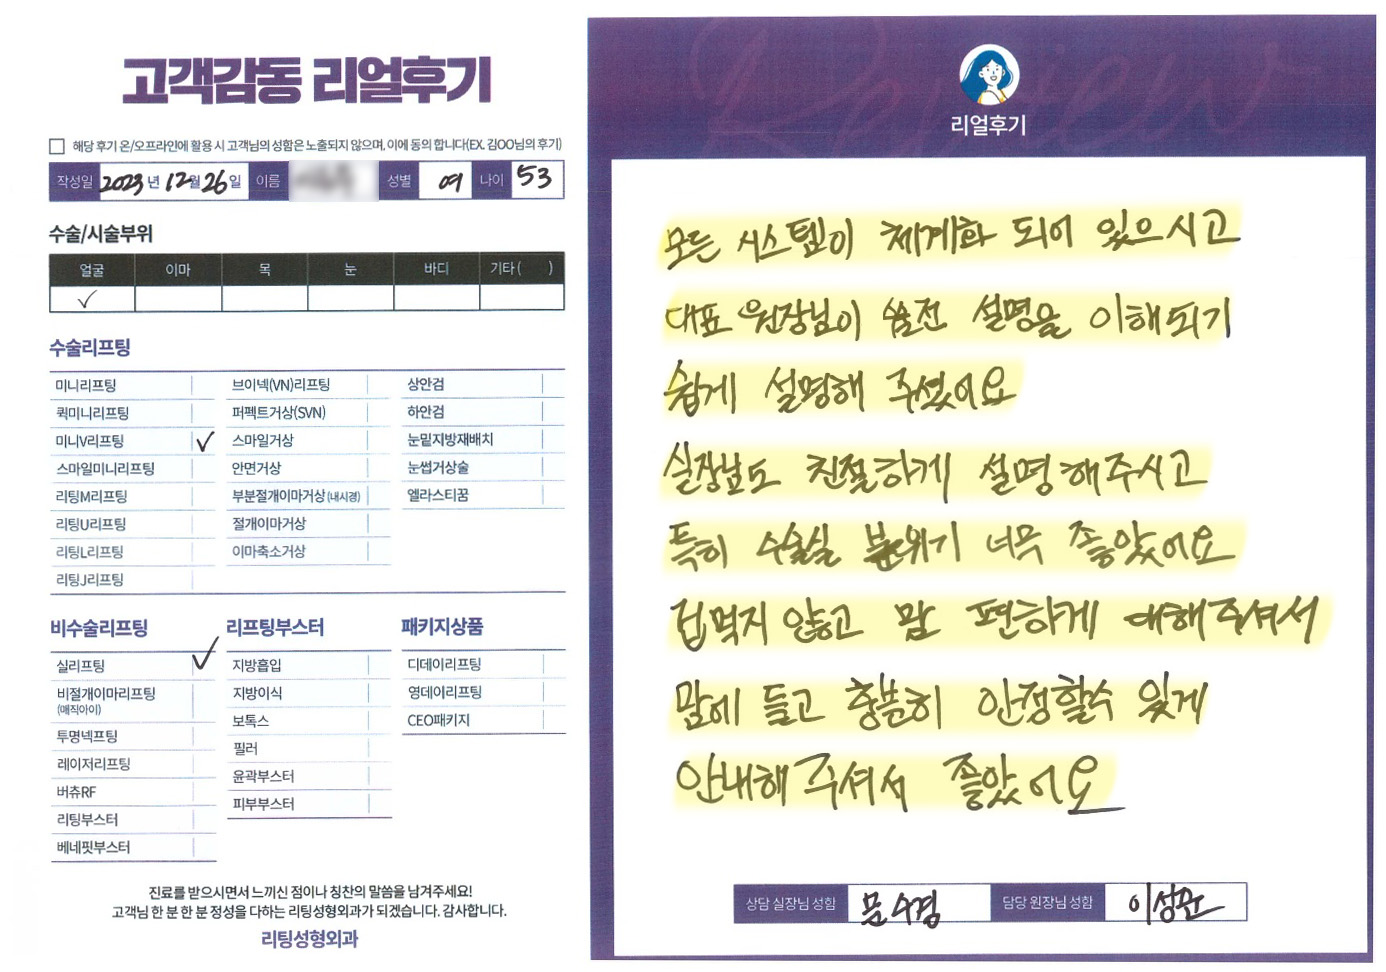 고객감동 리얼후기
해당 후기 온/오프라인에 활용 시 고객님의 성함은 노출되지 않으며, 이에 동의 합니다(EX. 김OO님의 후기)
작성일 2023년 12월 26일 이름 성별 여 나이 53
수술/시술부위
얼굴 이마 목 눈 바디 기타( )
✓
수술리프팅
미니리프팅 브이넥(VN)리프팅 상안검
퀵미니리프팅 퍼펙트거상(SVN) 하안검
미니V리프팅 ✓ 스마일거상 눈밑지방재배치
스마일미니리프팅 안면거상 눈썹거상술
리팅M리프팅 부분절개이마거상(내시경) 엘라스티꿈
리팅U리프팅 절개이마거상
리팅L리프팅 이마축소거상
리팅J리프팅
비수술리프팅 리프팅부스터 패키지상품
실리프팅 ✓ 지방흡입 디데이리프팅
비절개이마리프팅 지방이식 영데이리프팅
(매직아이)
보톡스 CEO패키지
투명넥프팅 필러
레이저리프팅 윤곽부스터
버츄RF 피부부스터
리팅부스터
베네핏부스터
진료를 받으시면서 느끼신 점이나 칭찬의 말씀을 남겨주세요!
고객님 한 분 한 분 정성을 다하는 리팅성형외과가 되겠습니다. 감사합니다.
리팅성형외과
Review
리얼후기
모든 시스템이 체계화 되어 있으시고
대표 원장님이 설명을 이해되기
쉽게 설명해 주셨어요
실장님도 친절하게 설명해주시고
특히 수술실 분위기 너무 좋았어요
겁먹지 않고 맘 편하게 대해주셔서
맘에 들고 안정할수 있게
안내해 주셔서 좋았어요
상담 실장님 성함 문수경 담당 원장님 성함 이성준